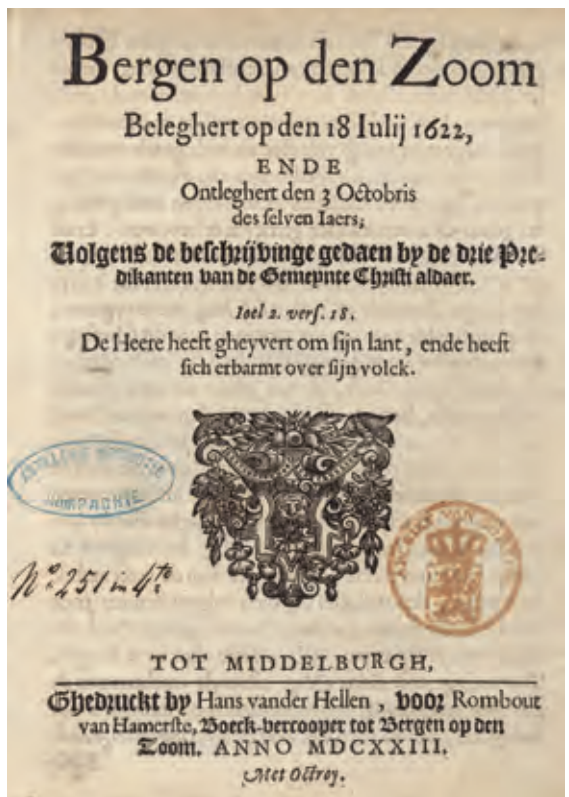 Bergen op den Zoom
Beleghert op den 18 Iulij 1622,
ENDE
Ontleghert den 3 Octobris
des selven Iaers;
Volgens de beschrijvinge gedaen by de drie Pre-
dikanten van de Gemeynte Christi aldaer.
Ioel 2. vers. 18.
De Heere heeft gheyvert om sijn lant, ende heeft
sich erbarmt over sijn volck.
COMPAGNIE
No. 251 in 4to.
TOT MIDDELBURGH,
Ghedruckt by Hans vander Hellen, voor Rombout
van Hamerste, Boeck-vercooper tot Bergen op den
Zoom. ANNO MDCXXIII.
Met Octroy.